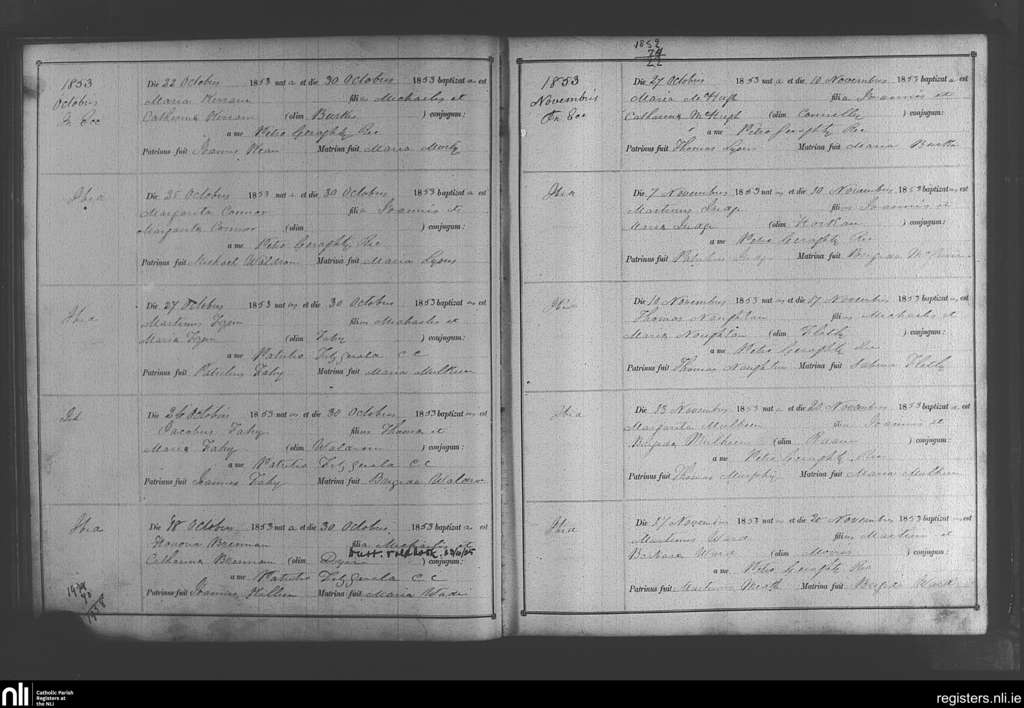 1853
Octobris
In Ecc
Die 22 Octobris 1853 nat a et die 30 Octobris 1853 baptizat a est
Maria Kirrane filia Michaelis et
Catherina Kirrane (olim Burke ) conjugum:
a me Petro Geraghty Rec
Patrinus fuit Joannes Kean Matrina fuit Maria Morly
Ibid
Die 25 Octobris 1853 nat a et die 30 Octobris 1853 baptizat a est
Margarita Connor filia Joannis et
Margarita Connor (olim ) conjugum:
a me Petro Geraghty Rec
Patrinus fuit Michael Waldron Matrina fuit Maria Lyons
Ibid
Die 27 Octobris 1853 nat us et die 30 Octobris 1853 baptizat us est
Martinus filius Michaelis et
Maria (olim Fahy ) conjugum:
a me Patritio Fitzgerald C C
Patrinus fuit Patritius Fahy Matrina fuit Maria Mulkeen
Die 26 Octobris 1853 nat us et die 30 Octobris 1853 baptizat us est
Jacobus Fahy filius Thoma et
Maria Fahy (olim Waldron ) conjugum:
a me Patritio Fitzgerald C C
Patrinus fuit Joannes Fahy Matrina fuit Brigida Waldron
Ibid
Die 18 Octobris 1853 nat a et die 30 Octobris 1853 baptizat a est
Honora Brennan filia Michaelis et
Catherina Brennan (olim Dyer ) conjugum:
a me Patritio Fitzgerald C C
Patrinus fuit Joannes Killeen Matrina fuit Maria Wade
1858
1852
74
22
1853
Novembris
In Ecc
Die 27 Octobris 1853 nat a et die 10 Novembris 1853 baptizat a est
Maria McHugh filia Joannis et
Catharina McHugh (olim Connelly ) conjugum:
a me Petro Geraghty Rec
Patrinus fuit Thomas Lyons Matrina fuit Maria Burke
Ibid
Die 7 Novembris 1853 nat us et die 10 Novembris 1853 baptizat us est
Martinus Judge filius Joannis et
Maria Judge (olim ) conjugum:
a me Petro Geraghty Rec
Patrinus fuit Patritius Judge Matrina fuit Brigida
Ibid
Die 10 Novembris 1853 nat us et die 17 Novembris 1853 baptizat us est
Thomas Naughton filius Michaelis et
Maria Naughton (olim ) conjugum:
a me Petro Geraghty Rec
Patrinus fuit Thomas Naughton Matrina fuit Sabina
Ibid
Die 13 Novembris 1853 nat a et die 20 Novembris 1853 baptizat a est
Margarita Mulkeen filia Joannis et
Brigida Mulkeen (olim ) conjugum:
a me Petro Geraghty Rec
Patrinus fuit Thomas Murphy Matrina fuit Maria Mulkeen
Ibid
Die 17 Novembris 1853 nat us et die 20 Novembris 1853 baptizat us est
Martinus Ward filius Martini et
Barbara Ward (olim Morris ) conjugum:
a me Petro Geraghty Rec
Patrinus fuit Martinus Matrina fuit Brigida Ward
nli
Catholic Parish
Registers at
the NLI
registers.nli.ie